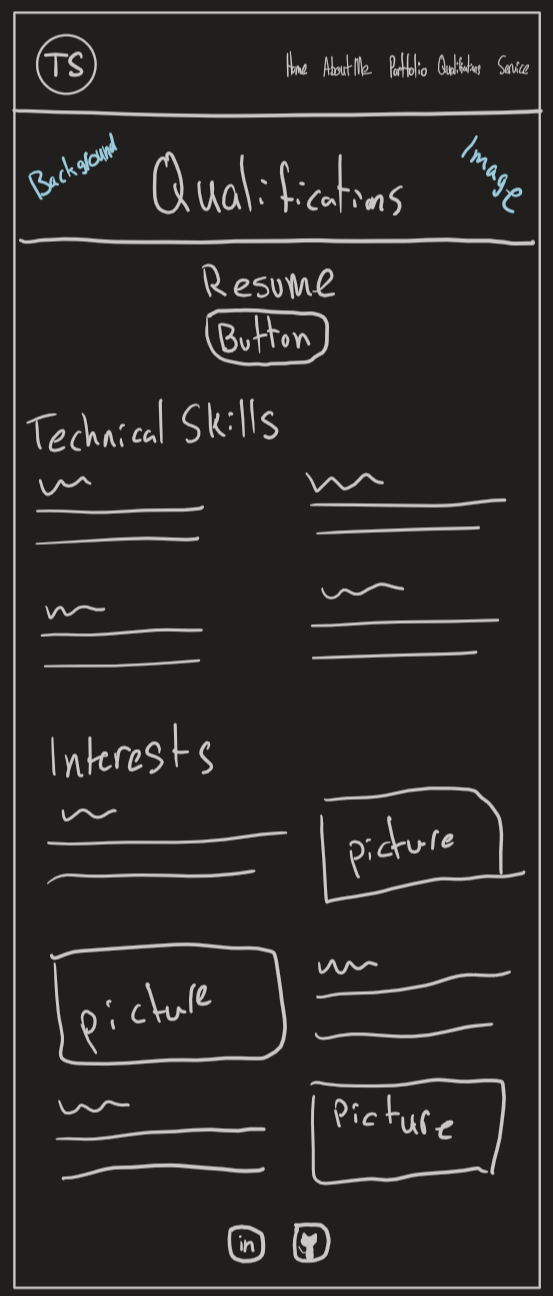 TS
Home About Me Portfolio Qualifications Service
Background
Image
Qualifications
Resume
Button
Technical Skills
Interests
picture
picture
Picture
in